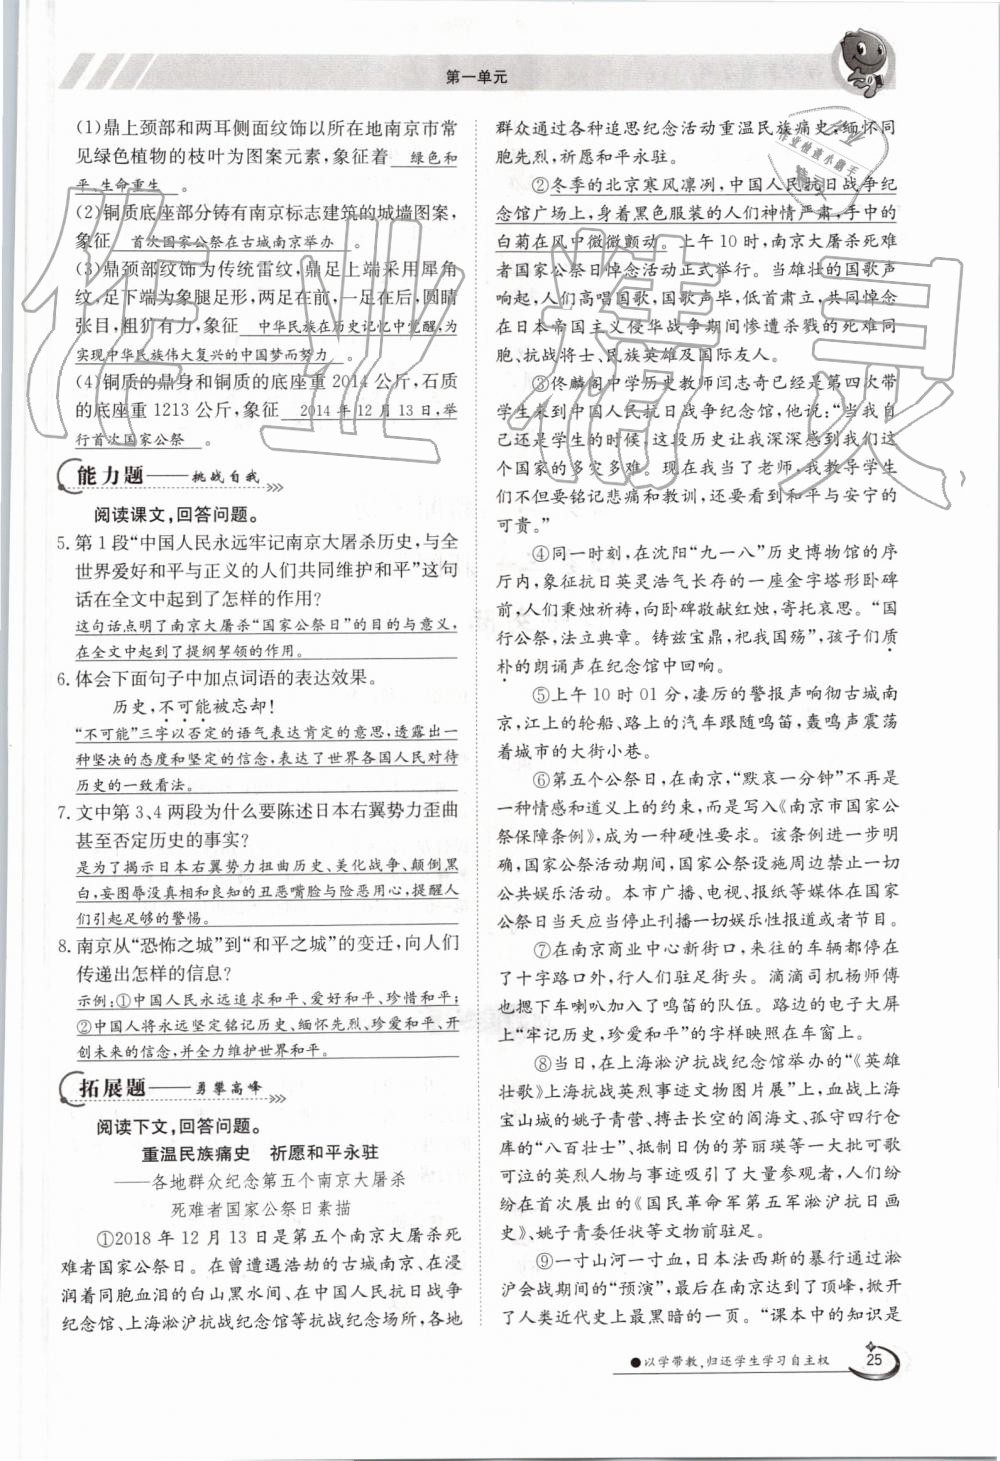 第一单元
(1)鼎上颈部和两耳侧面纹饰以所在地南京市常
见绿色植物的枝叶为图案元素,象征着 绿色和
平、生命重生 。
(2)铜质底座部分铸有南京标志建筑的城墙图案,
象征 首次国家公祭在古城南京举办 。
(3)鼎颈部纹饰为传统雷纹,鼎足上端采用犀角
纹,足下端为象腿足形,两足在前,一足在后,圆睛
张目,粗犷有力,象征 中华民族在历史记忆中觉醒,为
实现中华民族伟大复兴的中国梦而努力 。
(4)铜质的鼎身和铜质的底座重 2014 公斤,石质
的底座重 1213 公斤,象征 2014 年 12 月 13 日,举
行首次国家公祭 。
能力题——挑战自我
阅读课文,回答问题。
5. 第 1 段“中国人民永远牢记南京大屠杀历史,与全
世界爱好和平与正义的人们共同维护和平”这句
话在全文中起到了怎样的作用?
这句话点明了南京大屠杀“国家公祭日”的目的与意义,
在全文中起到了提纲挈领的作用。
6. 体会下面句子中加点词语的表达效果。
历史,不可能被忘却!
“不可能”三字以否定的语气表达肯定的意思,透露出一
种坚决的态度和坚定的信念,表达了世界各国人民对待
历史的一致看法。
7. 文中第 3、4 两段为什么要陈述日本右翼势力歪曲
甚至否定历史的事实?
是为了揭示日本右翼势力扭曲历史、美化战争、颠倒黑
白,妄图辱没真相和良知的丑恶嘴脸与险恶用心,提醒人
们引起足够的警惕。
8. 南京从“恐怖之城”到“和平之城”的变迁,向人们
传递出怎样的信息?
示例:①中国人民永远追求和平、爱好和平、珍惜和平;
②中国人将永远坚定铭记历史、缅怀先烈、珍爱和平、开
创未来的信念,并全力维护世界和平。
拓展题——勇攀高峰
阅读下文,回答问题。
重温民族痛史 祈愿和平永驻
——各地群众纪念第五个南京大屠杀
死难者国家公祭日素描
①2018 年 12 月 13 日是第五个南京大屠杀死
难者国家公祭日。在曾遭遇浩劫的古城南京、在浸
润着同胞血泪的白山黑水间、在中国人民抗日战争
纪念馆、上海淞沪抗战纪念馆等抗战纪念场所,各地
群众通过各种追思纪念活动重温民族痛史,缅怀同
胞先烈,祈愿和平永驻。
②冬季的北京寒风凛冽,中国人民抗日战争纪
念馆广场上,身着黑色服装的人们神情严肃,手中的
白菊在风中微微颤动。上午 10 时,南京大屠杀死难
者国家公祭日悼念活动正式举行。当雄壮的国歌声
响起,人们高唱国歌,国歌声毕,低首肃立,共同悼念
在日本帝国主义侵华战争期间惨遭杀戮的死难同
胞、抗战将士、民族英雄及国际友人。
③佟麟阁中学历史教师闫志奇已经是第四次带
学生来到中国人民抗日战争纪念馆,他说:“当我自
己还是学生的时候,这段历史让我深深感到我们这
个国家的多灾多难。现在我当了老师,我教导学生
们不但要铭记悲痛和教训,还要看到和平与安宁的
可贵。”
④同一时刻,在沈阳“九一八”历史博物馆的序
厅内,象征抗日英灵浩气长存的一座金字塔形卧碑
前,人们秉烛祈祷,向卧碑敬献红烛,寄托哀思。“国
行公祭,法立典章。铸兹宝鼎,祀我国殇”,孩子们质
朴的朗诵声在纪念馆中回响。
⑤上午 10 时 01 分,凄厉的警报声响彻古城南
京,江上的轮船、路上的汽车跟随鸣笛,轰鸣声震荡
着城市的大街小巷。
⑥第五个公祭日,在南京,“默哀一分钟”不再是
一种情感和道义上的约束,而是写入《南京市国家公
祭保障条例》,成为一种硬性要求。该条例进一步明
确,国家公祭活动期间,国家公祭设施周边禁止一切
公共娱乐活动。本市广播、电视、报纸等媒体在国家
公祭日当天应当停止刊播一切娱乐性报道或者节目。
⑦在南京商业中心新街口,来往的车辆都停在
了十字路口外,行人们驻足街头。滴滴司机杨师傅
也摁下车喇叭加入了鸣笛的队伍。路边的电子大屏
上“牢记历史,珍爱和平”的字样映照在车窗上。
⑧当日,在上海淞沪抗战纪念馆举办的“《英雄
壮歌》上海抗战英烈事迹文物图片展”上,血战上海
宝山城的姚子青营、搏击长空的阎海文、孤守四行仓
库的“八百壮士”、抵制日伪的茅丽瑛等一大批可歌
可泣的英烈人物与事迹吸引了大量参观者,人们纷
纷在首次展出的《国民革命军第五军淞沪抗日画
史》、姚子青委任状等文物前驻足。
⑨一寸山河一寸血,日本法西斯的暴行通过淞
沪会战期间的“预演”,最后在南京达到了顶峰,掀开
了人类近代史上最黑暗的一页。“课本中的知识是
●以学带教,归还学生学习自主权
25
作业精灵
作业检查小助手